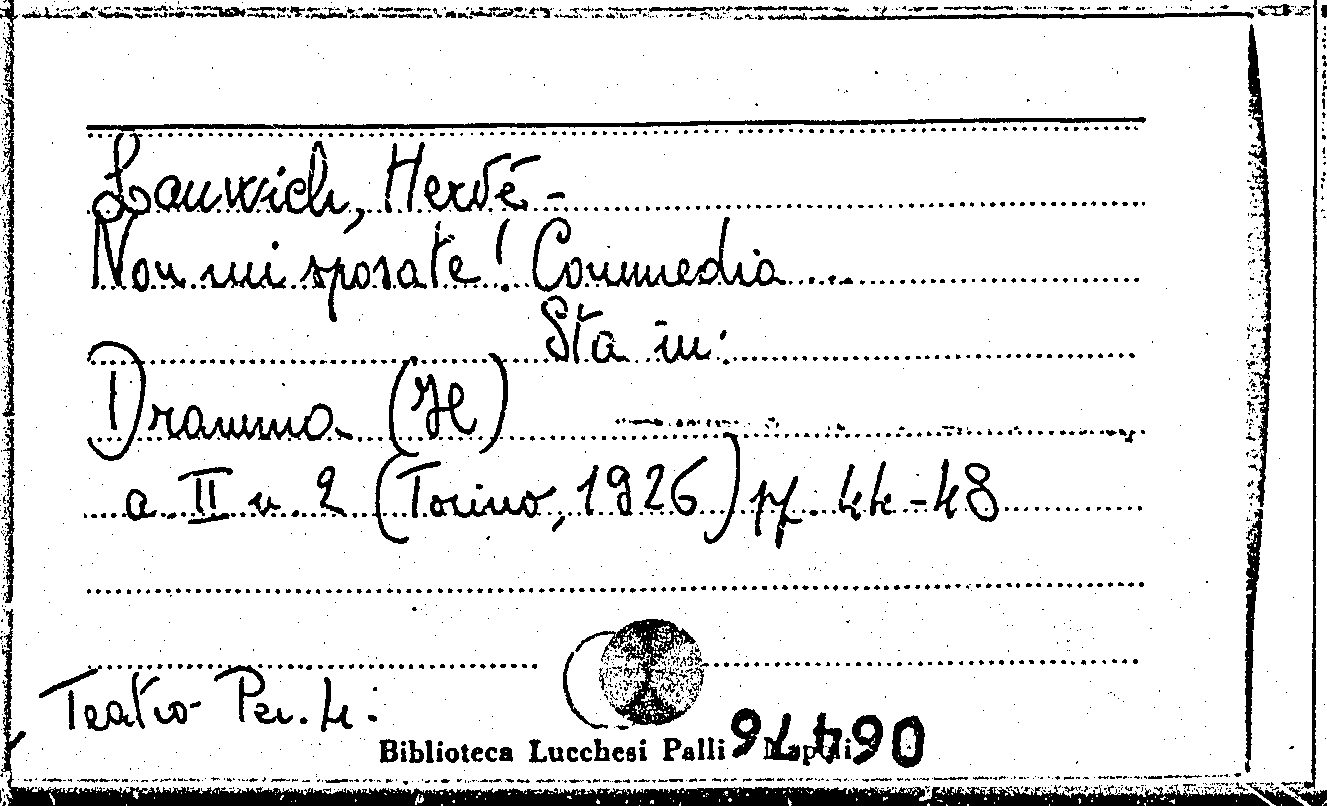 Lauwich, Hervé -
Non mi sposate! Commedia ...
Sta in:
Dramma (Il)
a. II n. 2 (Torino, 1926) pp. 44-48
Teatro Per. 4.
Biblioteca Lucchesi Palli Napoli